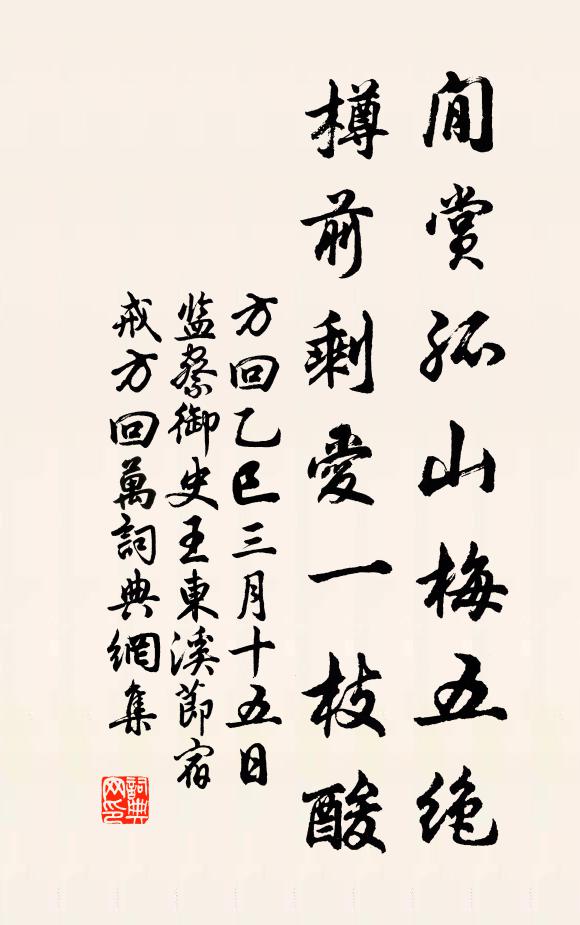 閒赏孤山梅五绝
樽前剩愛一枝酸
方回乙巳三月十五日
监察御史王東溪節宿
戒方回萬詞典網集
詞典网印